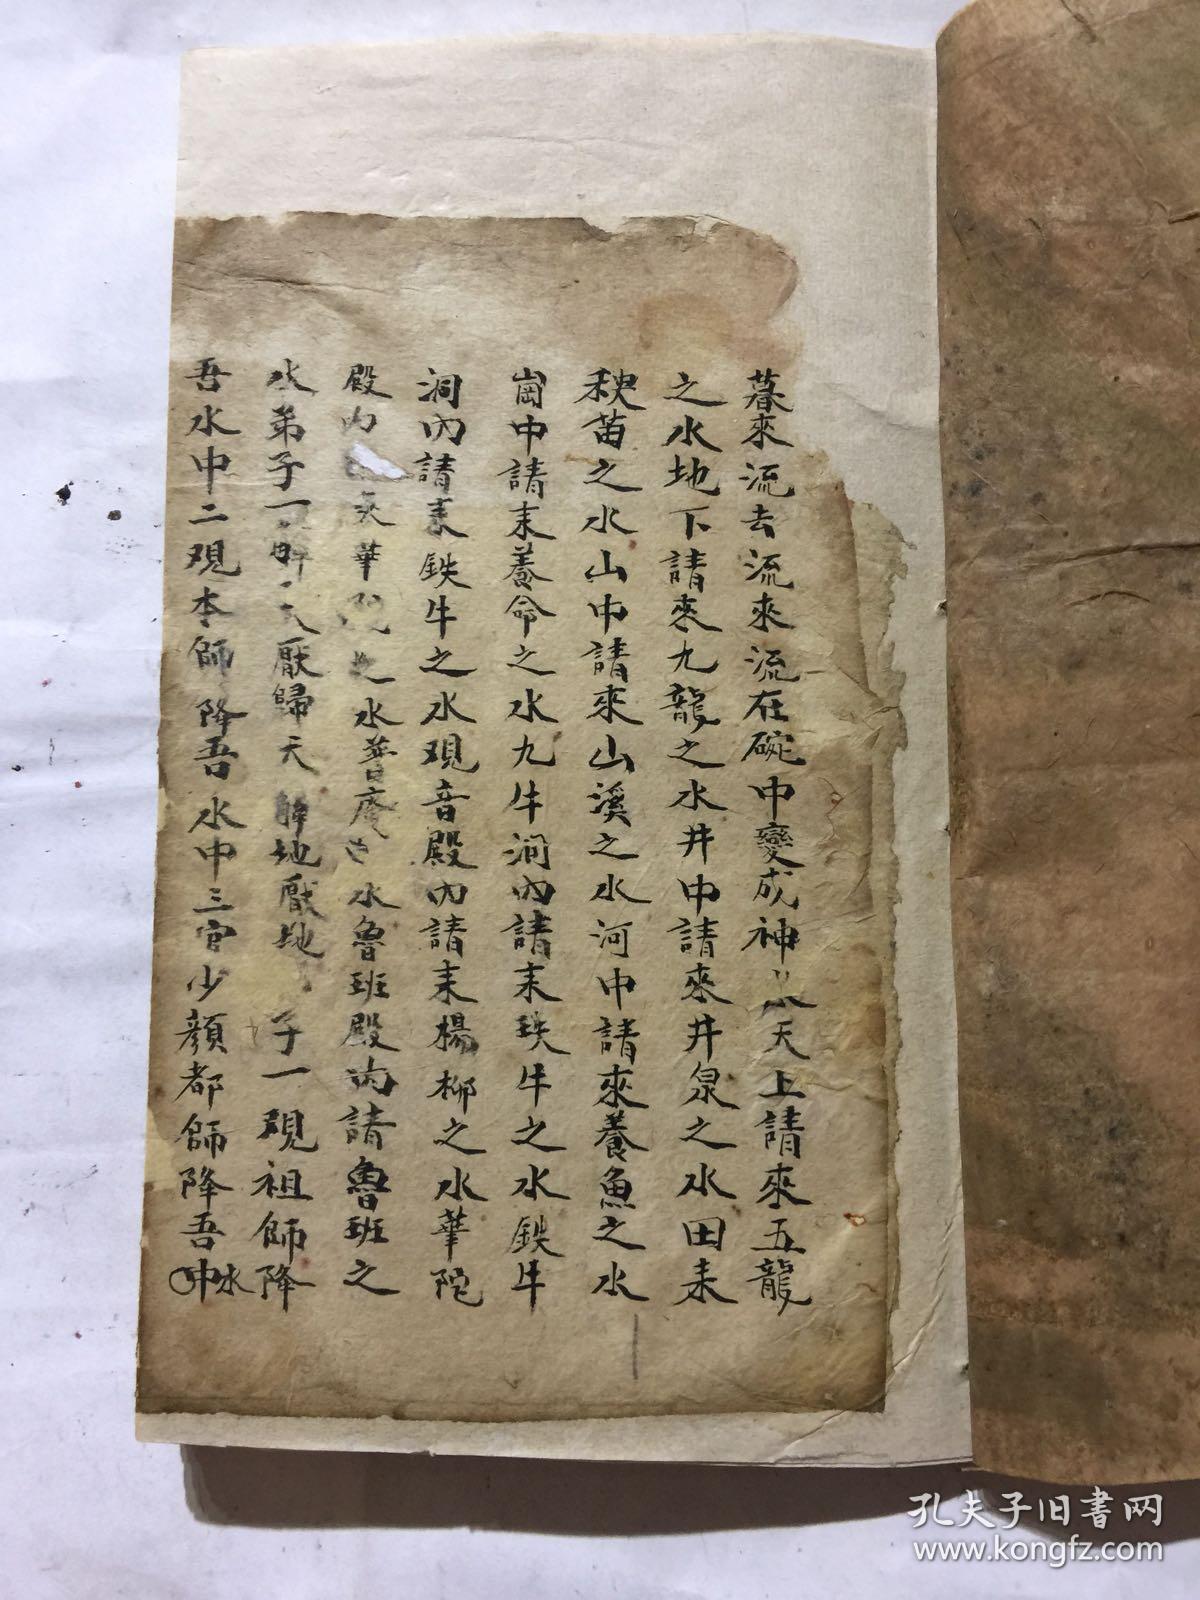 暮來流去流來流在碗中變成神水天上請來五龍
之水地下請來九龍之水井中請來井泉之水田耒
秧苗之水山中請來山溪之水河中請來養魚之水
崗中請耒養命之水九牛洞內請耒鉄牛之水鉄牛
洞內請耒鉄牛之水观音殿內請耒楊柳之水華陀
殿内華之水普庵水魯班殿内請魯班之
水弟子一厭歸天解地厭地子一观祖師降
吾水中二观本師降吾水中三官少顏都師降吾中水
孔夫子旧书网
www.kongfz.com